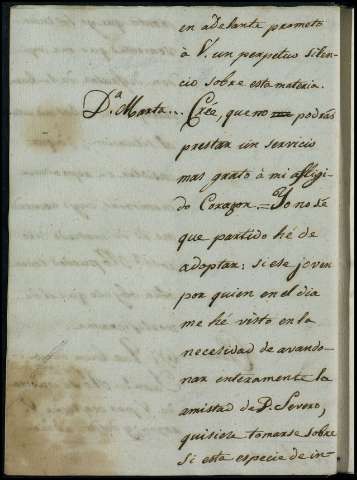 en adelante prometo
à V. un perpetuo silen-
cio sobre esta materia.
D.ª Marta... Crée, que no podrás
prestar un servicio
mas grato à mi afligi-
do Corazon. = Yo no sé
que partido hé de
adoptar: si ese joven
por quien en el dia
me hé visto en la
necesidad de avando-
nar enteramente la
amistad de D. Severo,
quisiese tomarse sobre
si esta especie de in-